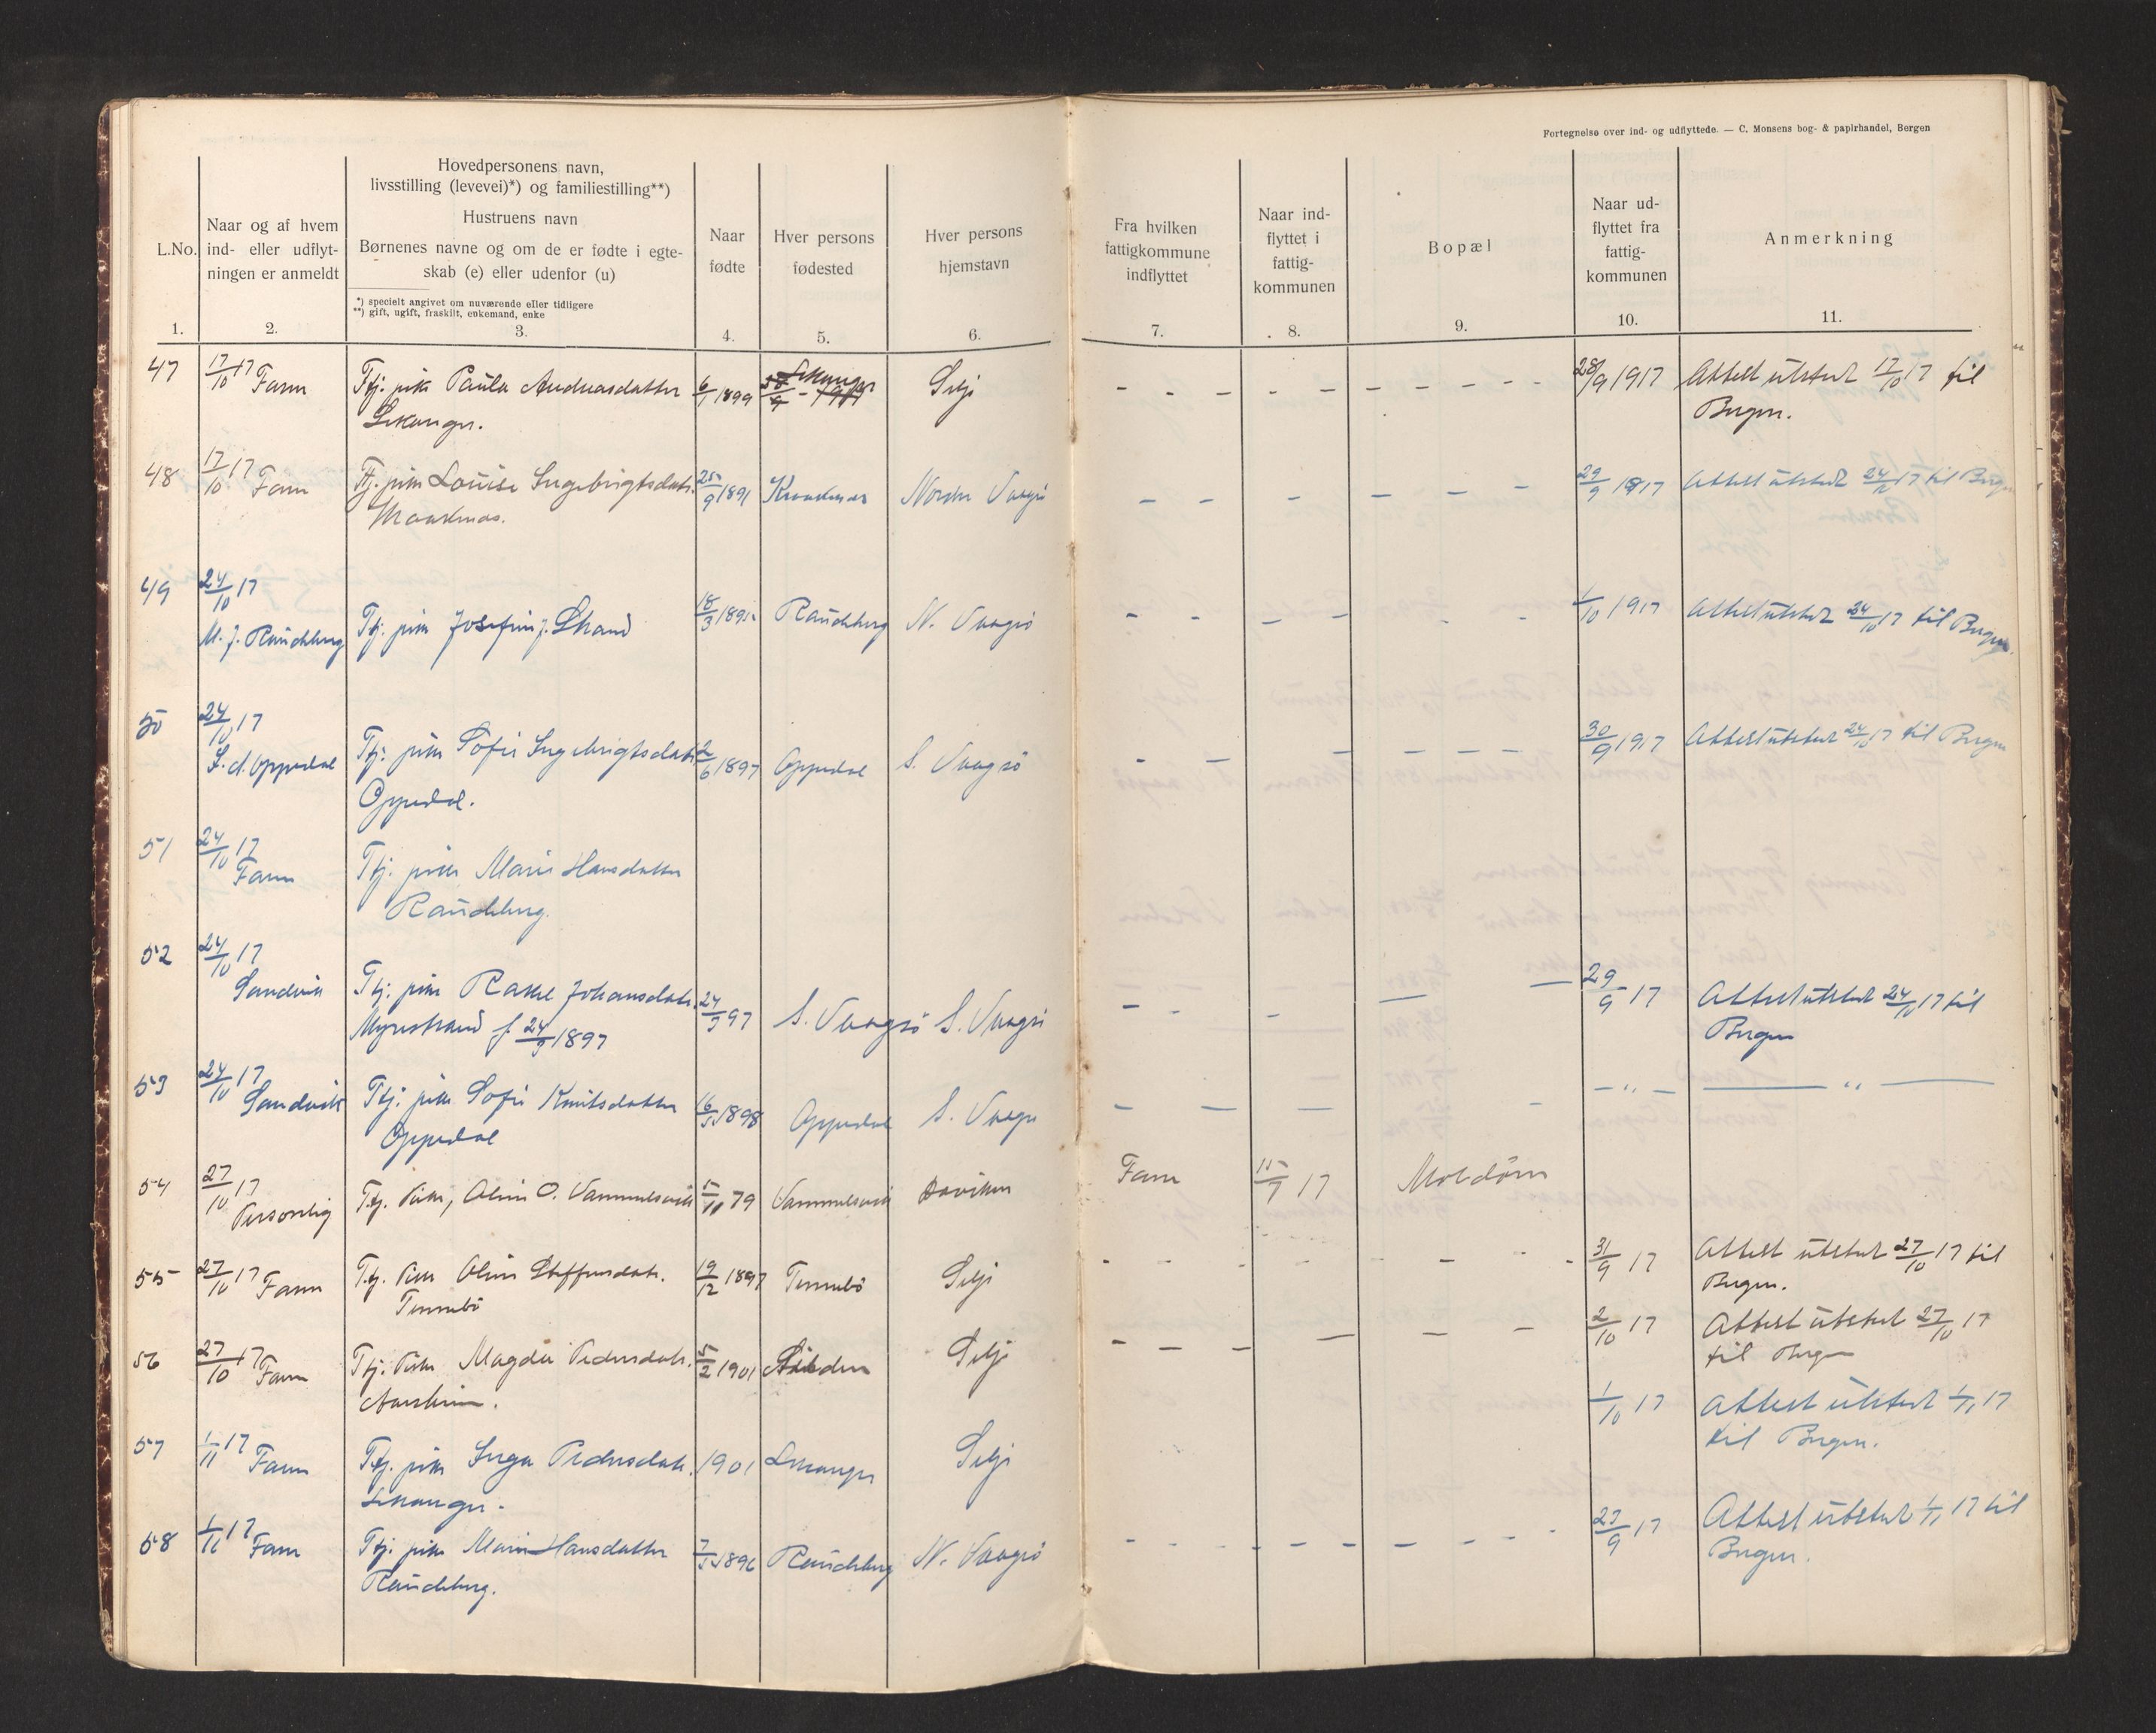 Fortegnelse over ind- og udflyttede. — C. Monsens bog- & papirhandel, Bergen
L.No.
Naar og af hvem
ind- eller udflyt-
ningen er anmeldt
Hovedpersonens navn,
livsstilling (levevei)*) og familiestilling**)
Hustruens navn
Børnenes navne og om de er fødte i egte-
skab (e) eller udenfor (u)
*) specielt angivet om nuværende eller tidligere
**) gift, ugift, fraskilt, enkemand, enke
Naar
fødte
Hver persons
fødested
Hver persons
hjemstavn
Fra hvilken
fattigkommune
indflyttet
Naar ind-
flyttet i
fattig-
kommunen
Bopæl
Naar ud-
flyttet fra
fattig-
kommunen
Anmerkning
1. 2. 3. 4. 5. 6. 7. 8. 9. 10. 11.
47 17/10 17 Faren Tj. pike Paula Andreasdatter 6/1 1899 Lekanger Selje - - - - - - - - - 28/9 1917 Attest utstedt 17/10 17 til
Lekanger. Bergen.
48 17/10 17 Faren Tj. pike Louise Ingebrigtsdatr. 25/9 1891 Kraakenes Nordre Vaagsö - - - - - - 29/9 1917 Attest utstedt 24/10 17 til Bergen
Kraakenes.
49 24/10 17
M. J. Raudeberg Tj. pike Josefine J. Strand 18/3 1891 Raudeberg N. Vaagsö - - - - - - 1/10 1917 Attest utstedt 24/10 17 til Bergen.
50 24/10 17
S. A. Oppedal Tj. pike Sofie Ingebrigtsdatr 2/6 1897 Oppedal S. Vaagsö - - - - - - 30/9 1917 Attest utstedt 24/10 17 til Bergen
Oppedal.
51 24/10 17
Faren Tj. pike Marie Hansdatter
Raudeberg.
52 24/10 17
Sandvik Tj. pike Rakel Johansdatr. 24/5 97 S. Vaagsö S. Vaagsö - - - - 29/9 17 Attest utstedt 24/10 17 til
Myrestrand f. 24/5 1897 Bergen
53 24/10 17
Sandvik Tj. pike Sofie Knutsdatter 16/5 1898 Oppedal S. Vaagsö - - - - - „ - — „ —
Oppedal
54 27/10 17
Personlig Tj. Pike, Oline O. Vemmelsvik 79 Vemmelsvik Daviken Faren 17 Moldöen
55 27/10 17 Faren Tj. Pike Oline Steffensdatr. 19/12 1897 Tennebö Selje - - - - - - 31/9 17 Attest utstedt 27/10 17 til
Tennebö Bergen.
56 27/10 17 Faren Tj. Pike Magda Pedersdatr. 5/2 1901 Selje - - - - - - 2/10 17 Attest utstedt 27/10 17
Aarsheim. til Bergen
57 1/11 17 Faren Tj. pike Inga Pedersdatr. 1901 Lekanger Selje 1/10 17 Attest utstedt 1/11 17
Lekanger. til Bergen.
58 1/11 17 Faren Tj. pike Marie Hansdatter 7/5 1896 Raudeberg N. Vaagsö - - - - - - - - 27/9 17 Attest utstedt 1/11 17 til
Raudeberg. Bergen.